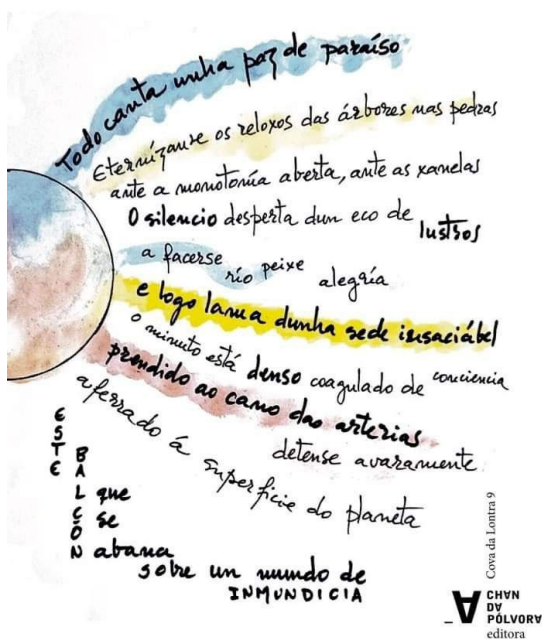 Todo canta unha paz de paraíso
Eternízanse os reloxos das árbores nas pedras
ante a monotonía aberta, ante as xanelas
O silencio desperta dun eco de lustros
a facerse río peixe alegría
e logo lama dunha sede insaciábel
o minuto está denso coagulado de conciencia
prendido ao cano das arterias
detense avaramente
aferrado á superficie do planeta
ESTE
BALCÓN
que
se
abana
sobre un mundo de
INMUNDICIA
Cova da Lontra 9
CHAN
DA
PÓLVORA
editora